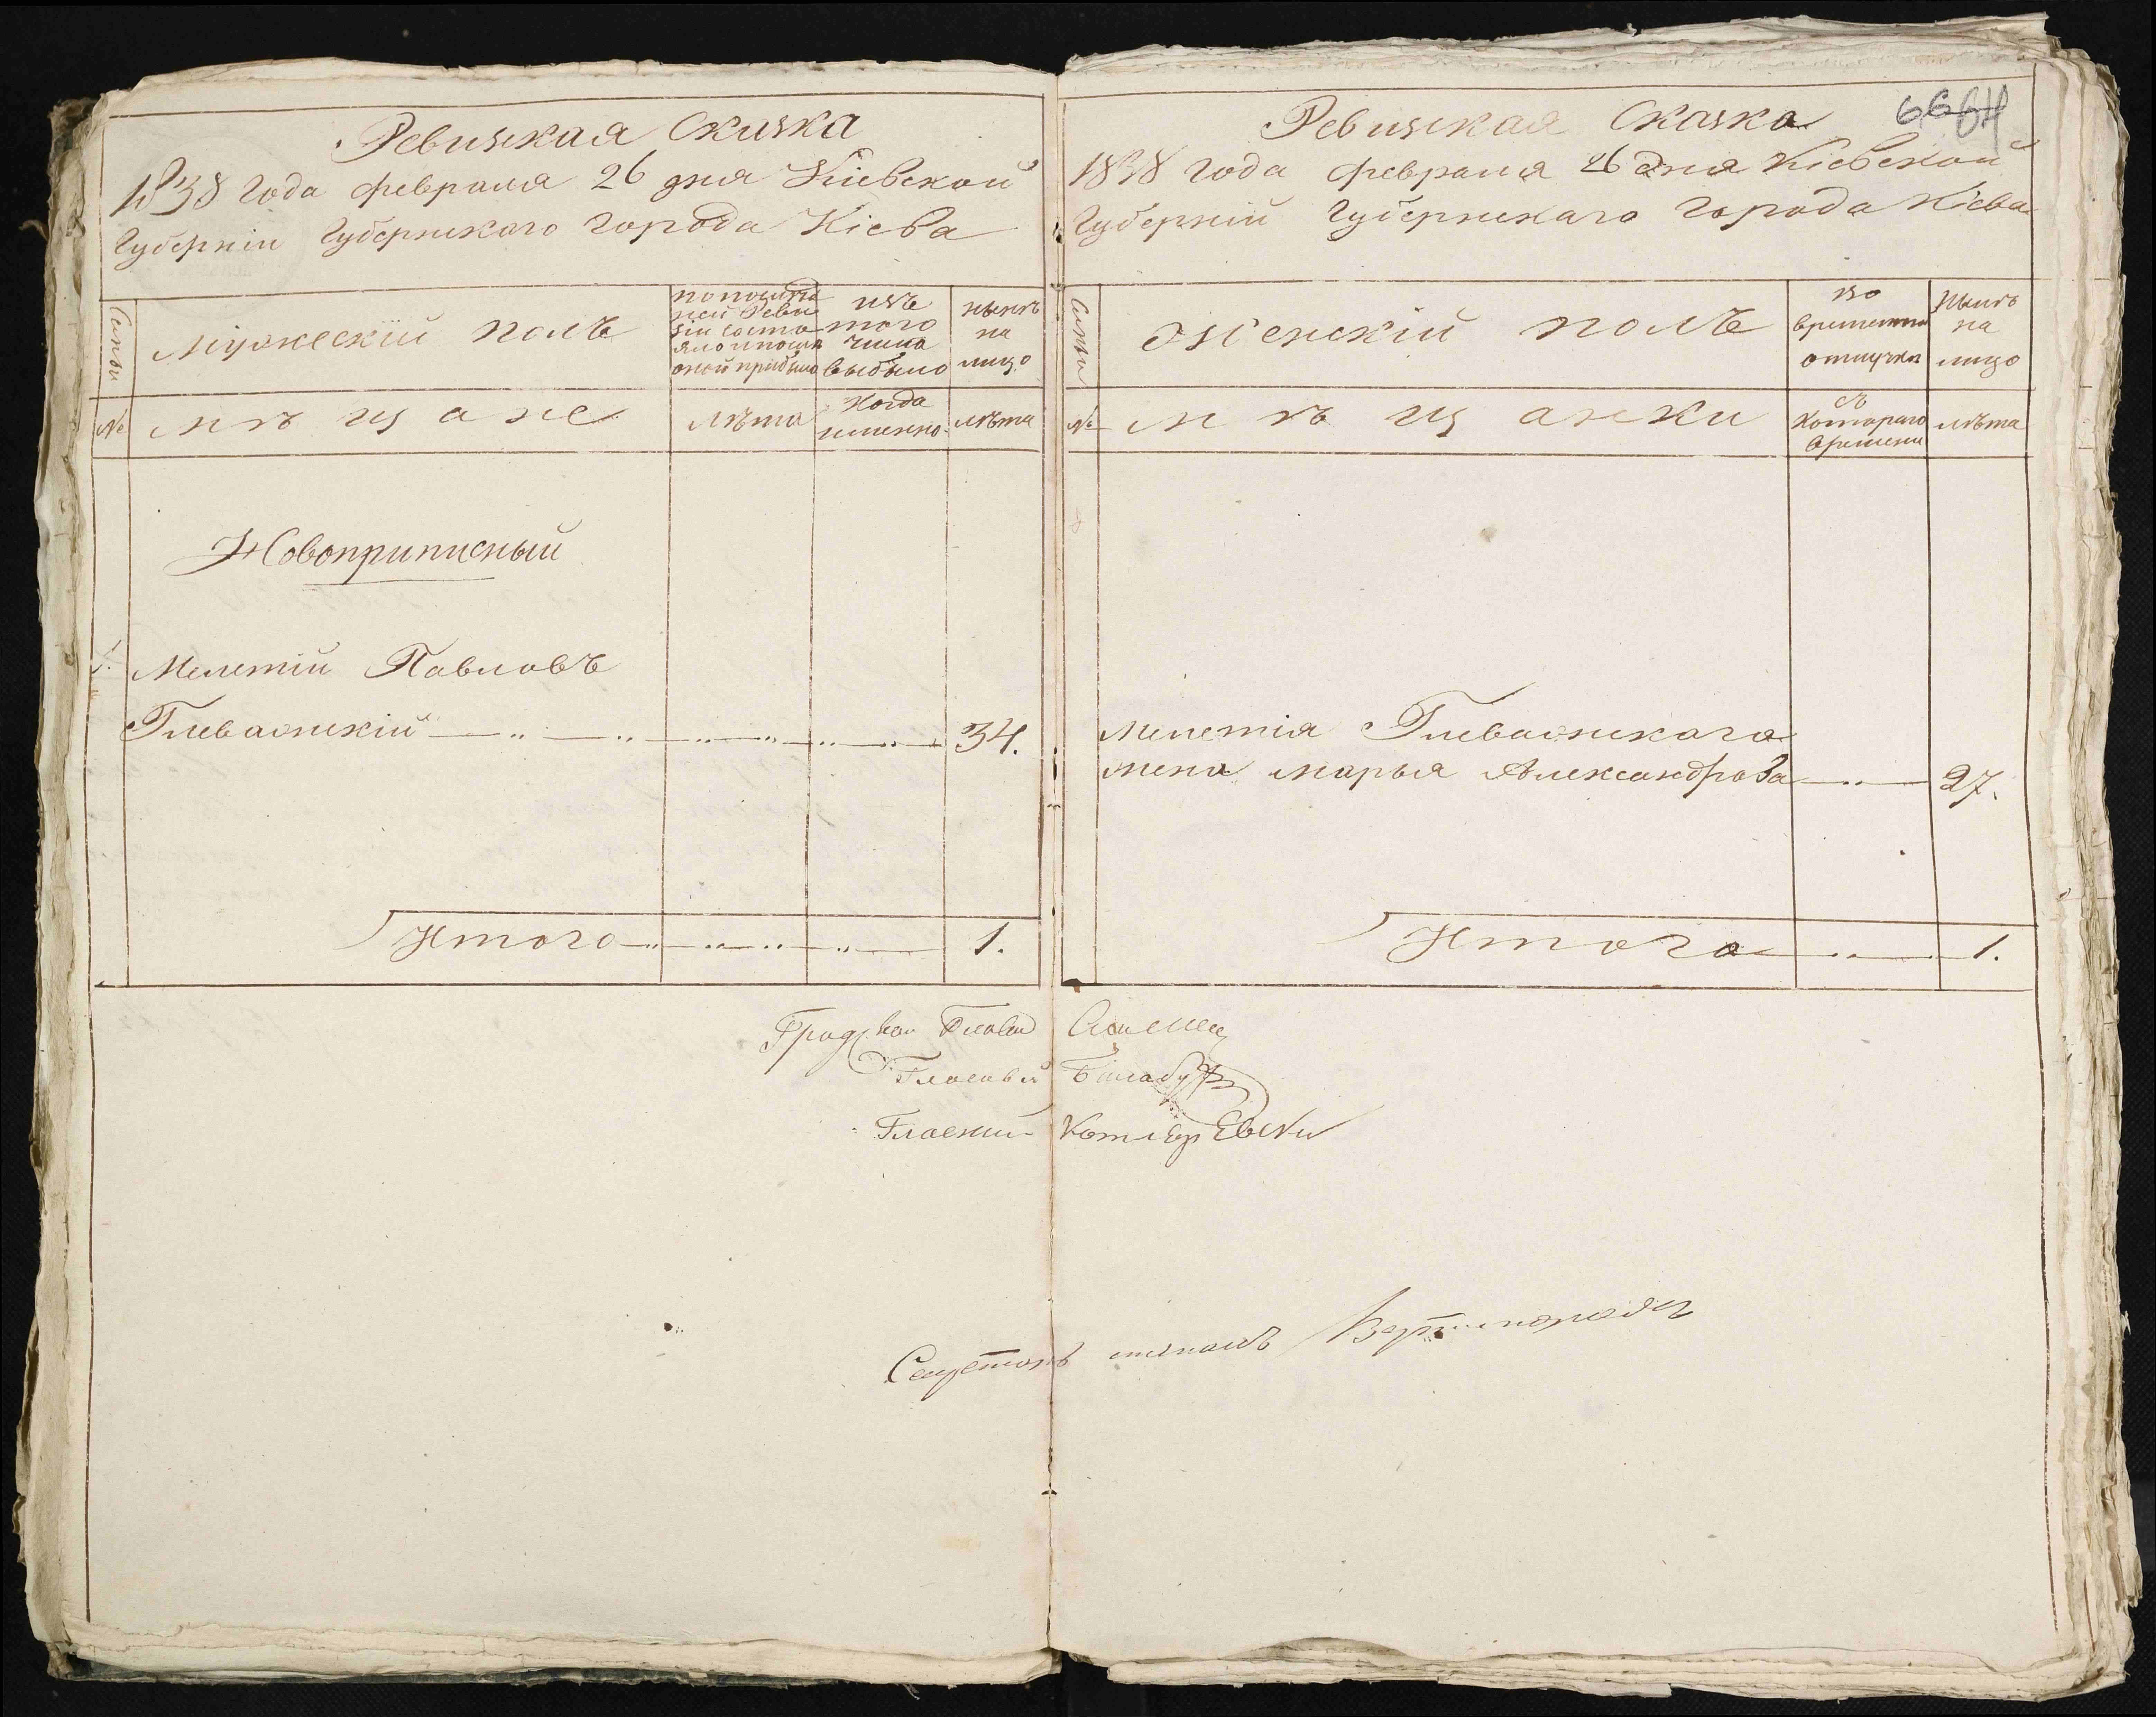 Ревизская Сказка
1838 года февраля 26 дня Кіевской
Губерніи Губернскаго города Кіева
Семьи
мужескій полъ
по послѣд
ней Реви
зіи состо
яло и послѣ
оной прибыло
изъ
того
числа
выбыло
нынѣ
на
лицо
№
мѣщане
лѣта
Когда
именно
лѣта
Новоприписный
1. Мелетій Павловъ
Глеваскій 34.
Итого 1.
66 64
Ревизская Сказка
1838 года февраля 26 дня Кіевской
Губерніи Губернскаго города Кіева
Семьи
женскій полъ
во
временной
отлучкѣ
Нынѣ
на
лицо
№
мѣщанки
съ
котораго
времени
лѣта
Мелетія Глеваскаго
жена марья Александрова 27.
Итого 1.
Градской Глава
Гласный
Гласный